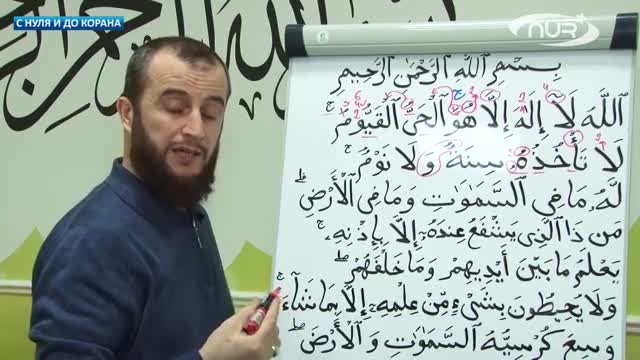 С НУЛЯ И ДО КОРАНА
NUR
بِسْمِ اللَّهِ الرَّحْمَٰنِ الرَّحِيمِ
اللَّهُ لَا إِلَٰهَ إِلَّا هُوَ الْحَيُّ الْقَيُّومُ ۚ
لَا تَأْخُذُهُ سِنَةٌ وَلَا نَوْمٌ ۚ
لَهُ مَا فِي السَّمَٰوَٰتِ وَمَا فِي الْأَرْضِ ۗ
مَن ذَا الَّذِي يَشْفَعُ عِندَهُ إِلَّا بِإِذْنِهِ ۚ
يَعْلَمُ مَا بَيْنَ أَيْدِيهِمْ وَمَا خَلْفَهُمْ ۖ
وَلَا يُحِيطُونَ بِشَيْءٍ مِّنْ عِلْمِهِ إِلَّا بِمَا شَآءَ ۚ
وَسِعَ كُرْسِيُّهُ السَّمَٰوَٰتِ وَالْأَرْضَ ۖ